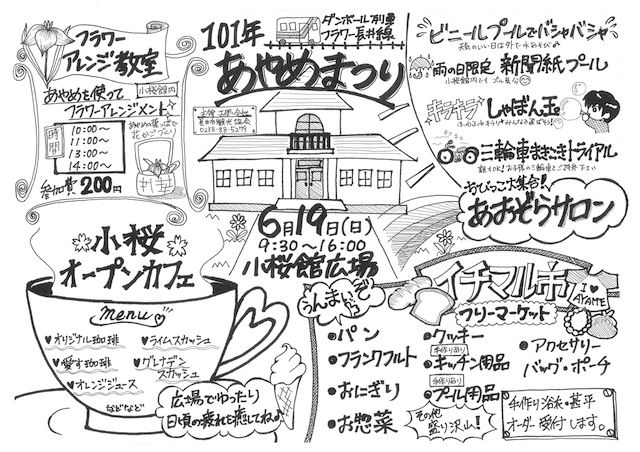 フラワー
アレンジ教室
小桜館内
あやめを使って
フラワーアレンジメント
時間
10:00〜
11:00〜
13:00〜
14:00〜
あやめの葉っぱで
花かごづくり
参加費200円
101年
ダンボール列車
フラワー長井線
あやめまつり
長井市観光協会
0238-88-5279
6月19日(日)
9:30〜16:00
小桜館広場
ビニールプールでバシャバシャ
天気のいい日は外で水あそび♪
雨の日限定 新聞紙プール
キラキラ しゃぼん玉
三輪車ままこきトライアル
ちびっこ大集合!
あおぞらサロン
小桜
オープンカフェ
menu
♥オリジナル珈琲
♥愛す珈琲
♥オレンジジュース
♥ライムスカッシュ
♥グレナデン
スカッシュ
などなど
広場でゆったり
日頃の疲れを癒してね♪
うんまいぞ
•パン
•フランクフルト
•おにぎり
•お惣菜
イチマル市
フリーマーケット
I ♥
AYAME
•クッキー
手作りあり
•キッチン用品
手作りあり
•プール用品
•アクセサリー
バッグ・ポーチ
その他
盛り沢山!
手作り浴衣・甚平
オーダー受付します。